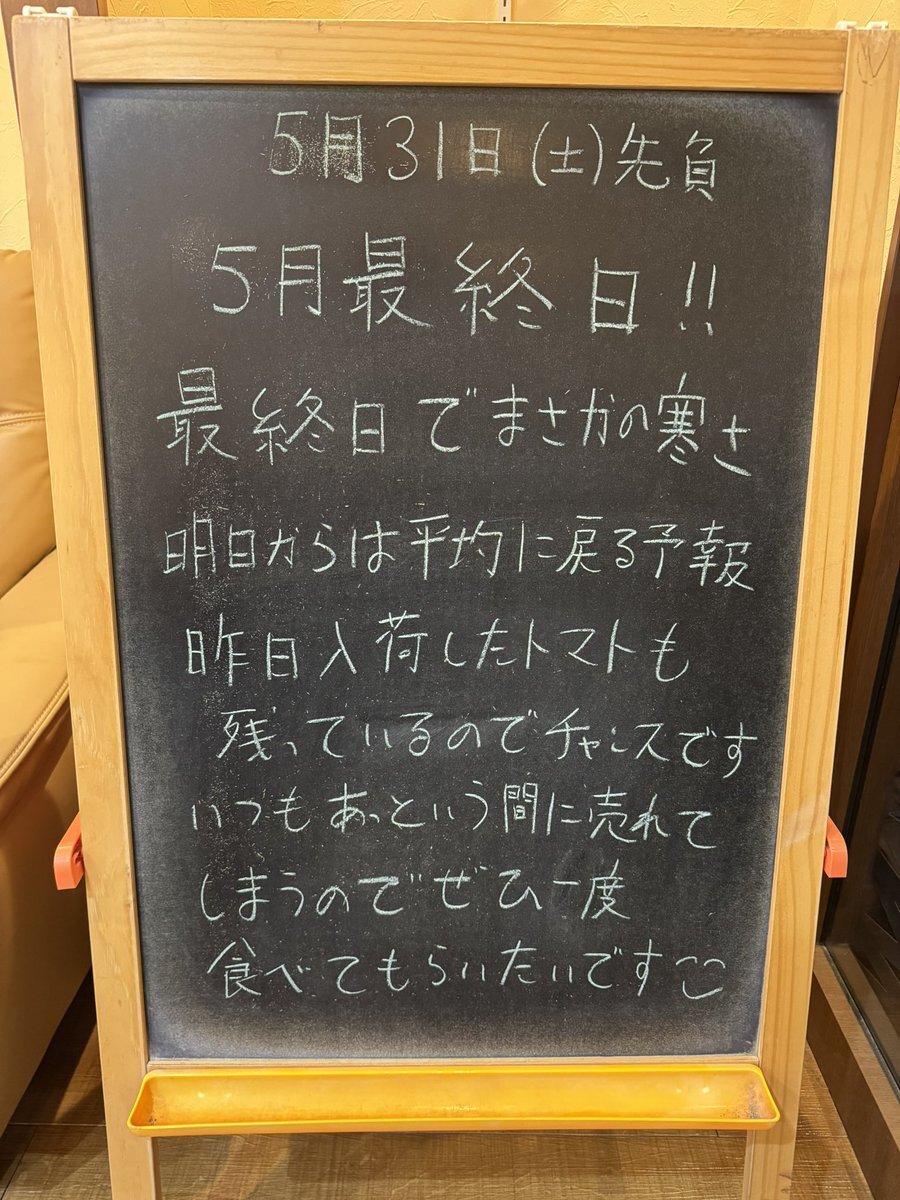 5月31日(土)先負
5月最終日!!
最終日でまさかの寒さ
明日からは平均に戻る予報
昨日入荷したトマトも
残っているのでチャンスです
いつもあっという間に売れて
しまうのでぜひ一度
食べてもらいたいです